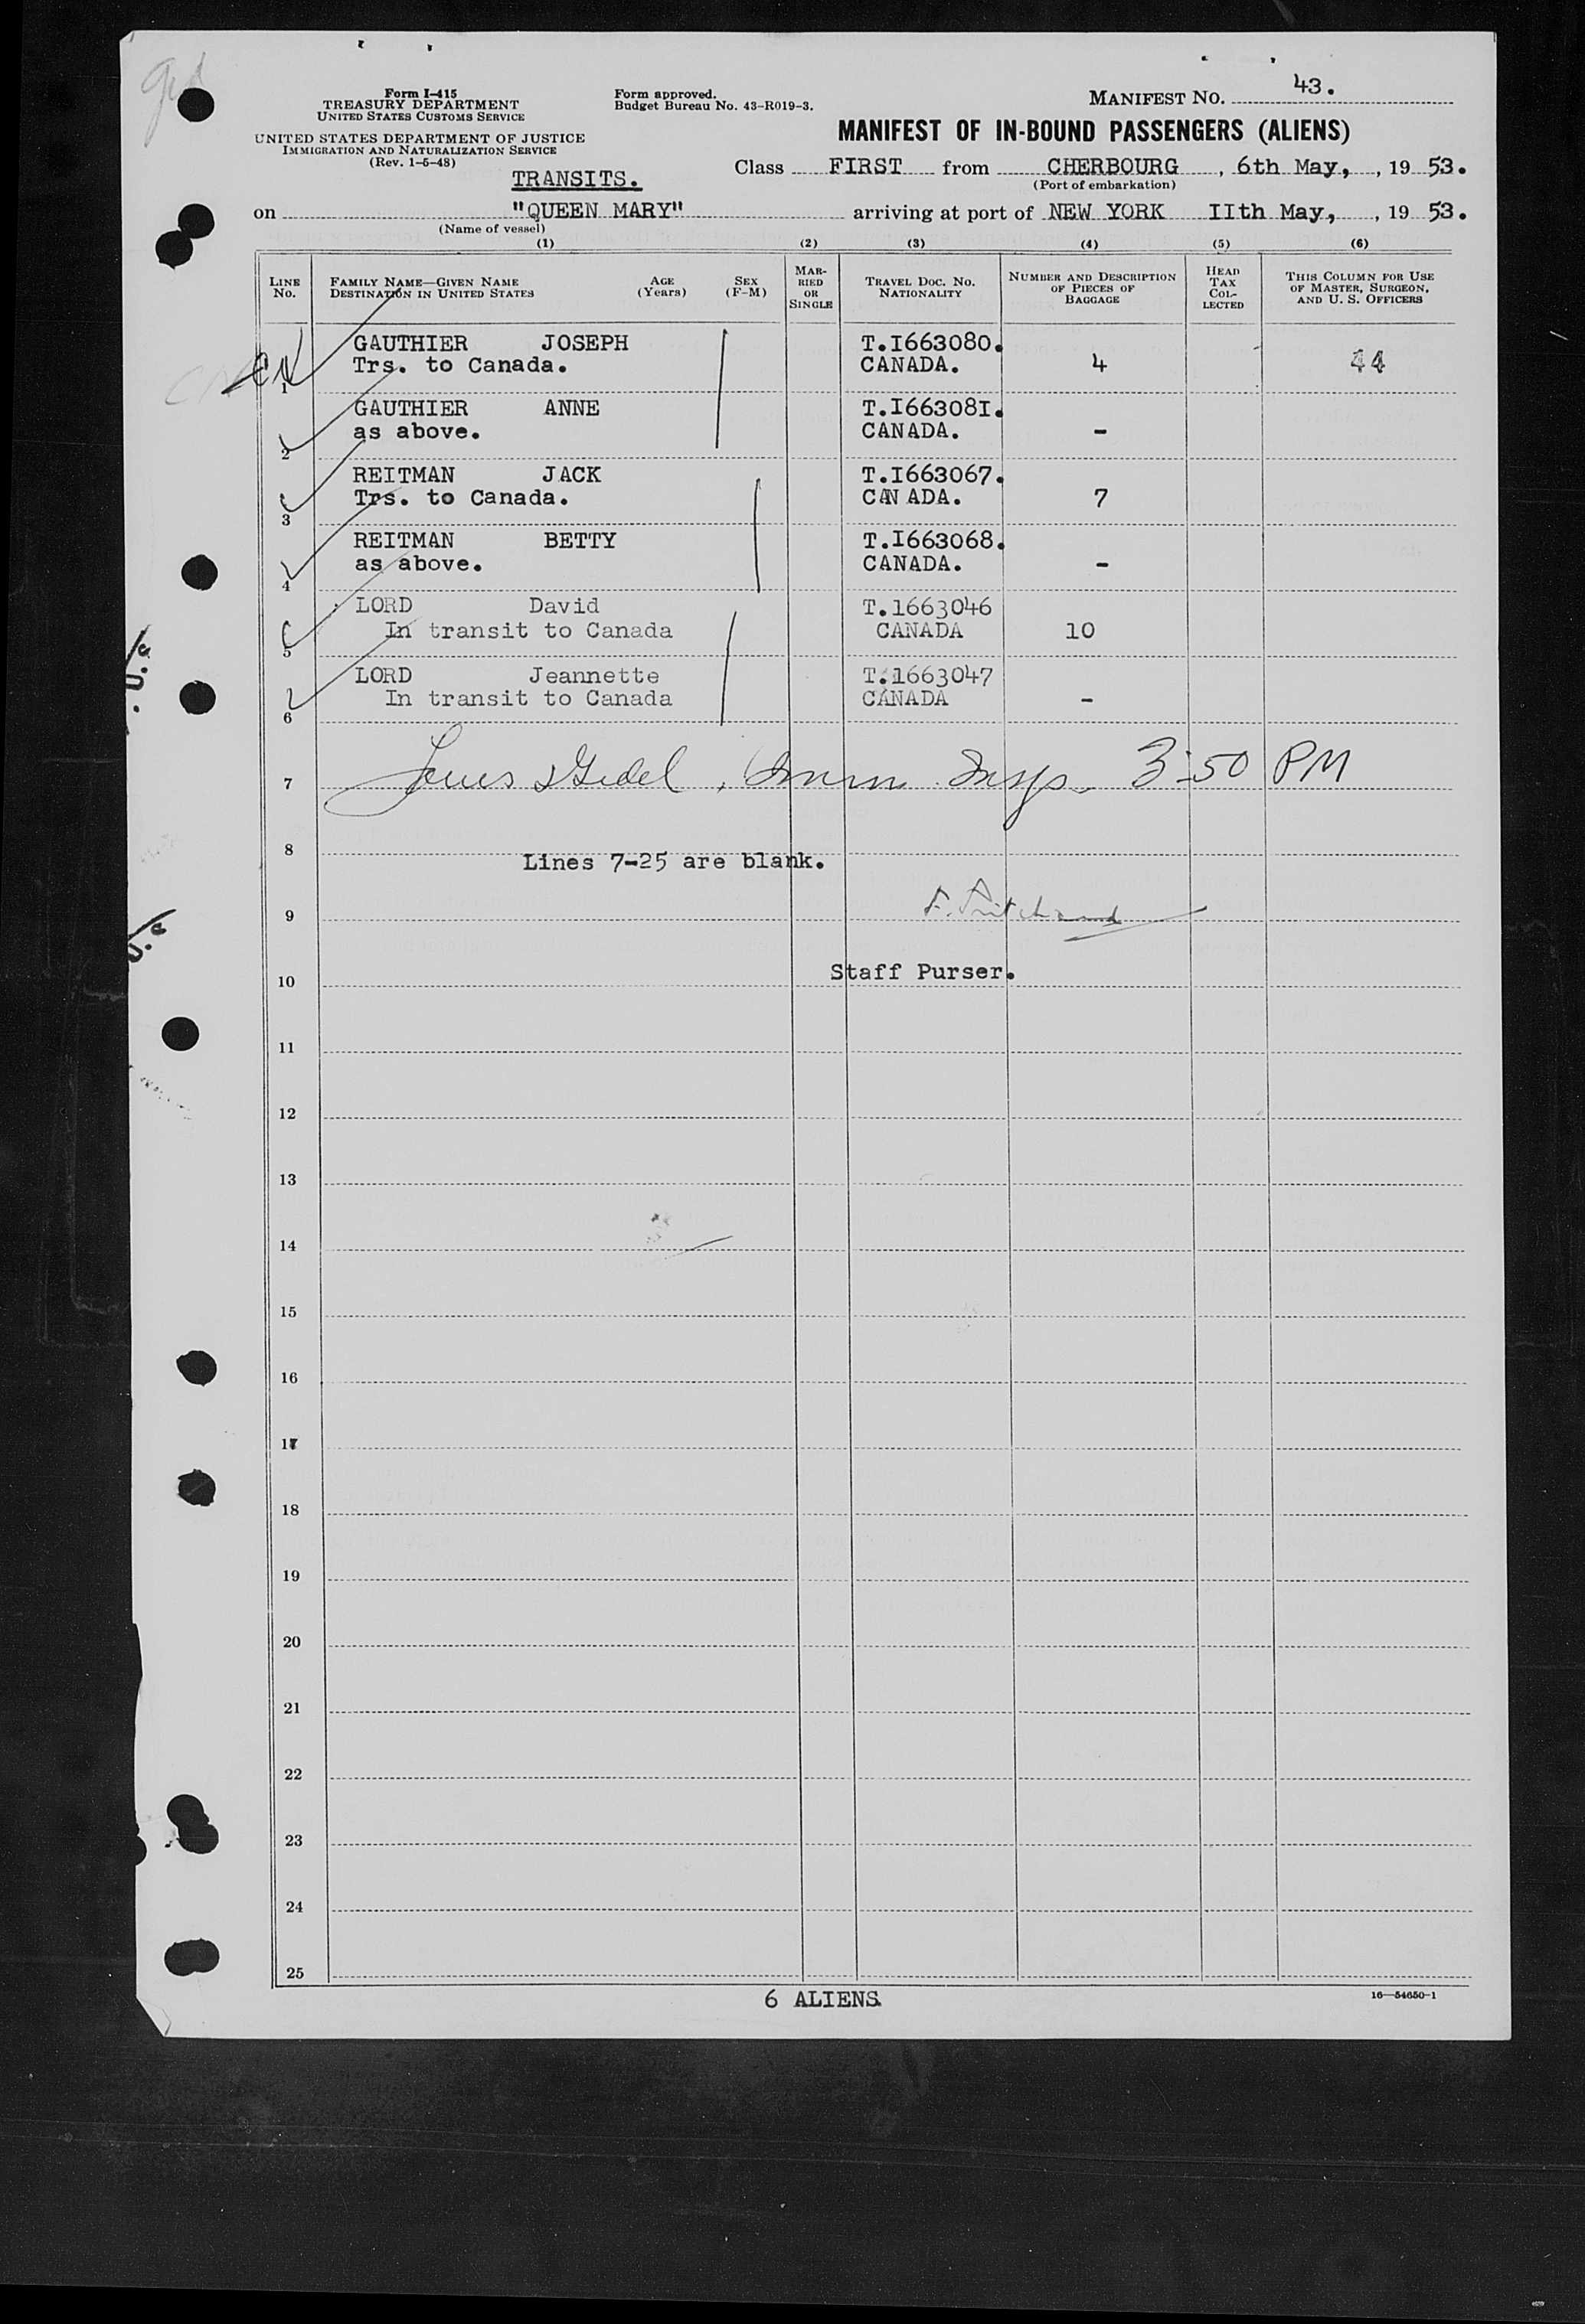 Form I-415
TREASURY DEPARTMENT
UNITED STATES CUSTOMS SERVICE
UNITED STATES DEPARTMENT OF JUSTICE
IMMIGRATION AND NATURALIZATION SERVICE
(Rev. 1-5-48)
Form approved.
Budget Bureau No. 43-R019-3.
MANIFEST NO. 43.
MANIFEST OF IN-BOUND PASSENGERS (ALIENS)
Class FIRST from CHERBOURG, 6th May, , 19 53.
(Port of embarkation)
TRANSITS.
on "QUEEN MARY" arriving at port of NEW YORK IIth May, , 19 53.
(Name of vessel)
(1) (2) (3) (4) (5) (6)
LINE NO. FAMILY NAME—GIVEN NAME DESTINATION IN UNITED STATES AGE (Years) SEX (F-M) MARRIED OR SINGLE TRAVEL DOC. NO. NATIONALITY NUMBER AND DESCRIPTION OF PIECES OF BAGGAGE HEAD TAX COLLECTED THIS COLUMN FOR USE OF MASTER, SURGEON, AND U. S. OFFICERS
GAUTHIER JOSEPH T.I663080.
1 Trs. to Canada. CANADA. 4 44
GAUTHIER ANNE T.I66308I.
2 as above. CANADA. -
REITMAN JACK T.I663067.
3 Trs. to Canada. CANADA. 7
REITMAN BETTY T.I663068.
4 as above. CANADA. -
LORD David T.1663046
5 In transit to Canada CANADA 10
LORD Jeannette T.1663047
6 In transit to Canada CANADA -
7 Imm. Insp. 3:50 PM
8 Lines 7-25 are blank.
9 F. Pritchard
10 Staff Purser.
11
12
13
14
15
16
17
18
19
20
21
22
23
24
25
6 ALIENS
16—54650-1